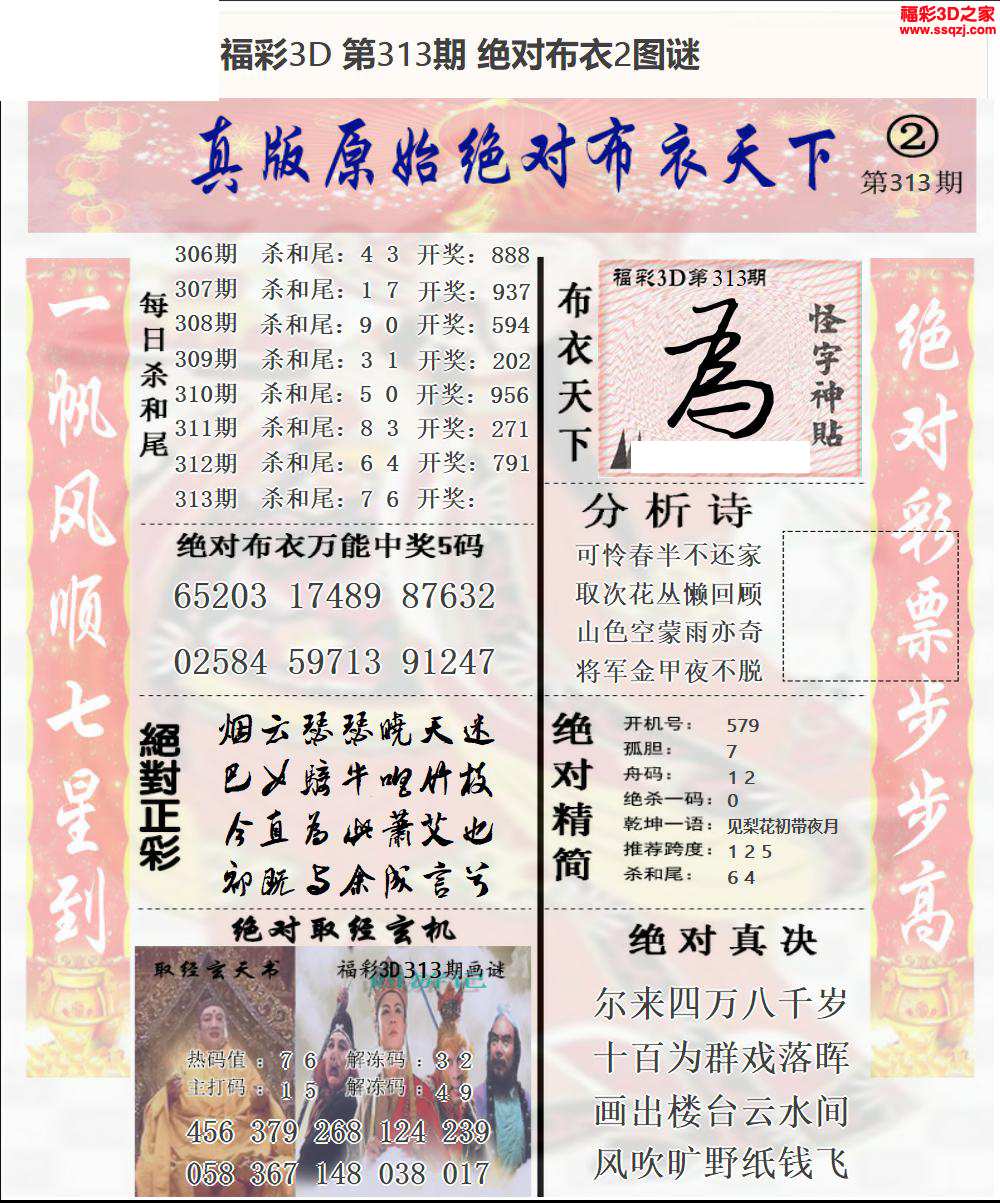 福彩3D之家
www.ssqzj.com
福彩3D 第313期 绝对布衣2图谜
真版原始绝对布衣天下
②
第313期
一帆风顺七星到
每日杀和尾
306期 杀和尾：4 3 开奖：888
307期 杀和尾：1 7 开奖：937
308期 杀和尾：9 0 开奖：594
309期 杀和尾：3 1 开奖：202
310期 杀和尾：5 0 开奖：956
311期 杀和尾：8 3 开奖：271
312期 杀和尾：6 4 开奖：791
313期 杀和尾：7 6 开奖：
绝对布衣万能中奖5码
65203 17489 87632
02584 59713 91247
絕對正彩
烟云瑟瑟晓天迷
今直为此萧艾也
绝对取经玄机
取经玄天书
福彩3D313期画谜
热码值：7 6 解冻码：3 2
主打码：1 5 解冻码：4 9
456 379 268 124 239
058 367 148 038 017
布衣天下
福彩3D第313期
为
怪字神貼
分析诗
可怜春半不还家
取次花丛懒回顾
山色空蒙雨亦奇
将军金甲夜不脱
绝对精简
开机号： 579
孤胆： 7
舟码： 1 2
绝杀一码：0
乾坤一语：见梨花初带夜月
推荐跨度：1 2 5
杀和尾： 6 4
绝对真决
尔来四万八千岁
十百为群戏落晖
画出楼台云水间
风吹旷野纸钱飞
绝对彩票步步高